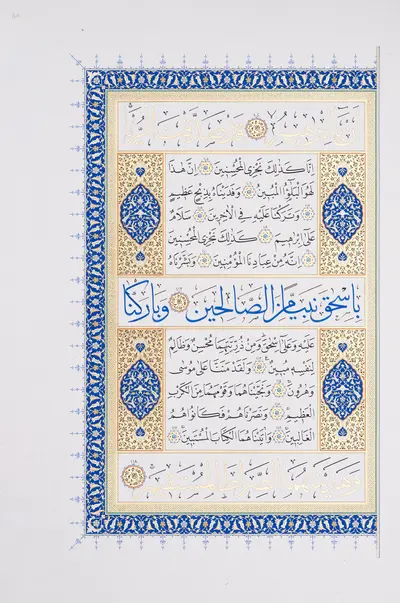 اِنَّا كَذٰلِكَ نَجْزِي الْمُحْسِنِينَ ۝ اِنَّ هٰذَا
لَهُوَ الْبَلٰٓؤُا الْمُبِينُ ۝ وَفَدَيْنَاهُ بِذِبْحٍ عَظِيمٍ
۝ وَتَرَكْنَا عَلَيْهِ فِي الْاٰخِرِينَ ۝ سَلَامٌ
عَلٰٓى اِبْرٰهِيمَ ۝ كَذٰلِكَ نَجْزِي الْمُحْسِنِينَ
۝ اِنَّهُ مِنْ عِبَادِنَا الْمُؤْمِنِينَ ۝ وَبَشَّرْنَاهُ
بِاِسْحٰقَ نَبِيًّا مِنَ الصَّالِحِينَ ۝ وَبَارَكْنَا
عَلَيْهِ وَعَلٰٓى اِسْحٰقَ وَمِنْ ذُرِّيَّتِهِمَا مُحْسِنٌ وَظَالِمٌ
لِنَفْسِهِ مُبِينٌ ۝ وَلَقَدْ مَنَنَّا عَلٰى مُوسٰى
وَهٰرُونَ ۝ وَنَجَّيْنَاهُمَا وَقَوْمَهُمَا مِنَ الْكَرْبِ
الْعَظِيمِ ۝ وَنَصَرْنَاهُمْ فَكَانُوا هُمُ
الْغَالِبِينَ ۝ وَاٰتَيْنَاهُمَا الْكِتَابَ الْمُسْتَبِينَ ۝
وَهَدَيْنَاهُمَا الصِّرَاطَ الْمُسْتَقِيمَ ۝